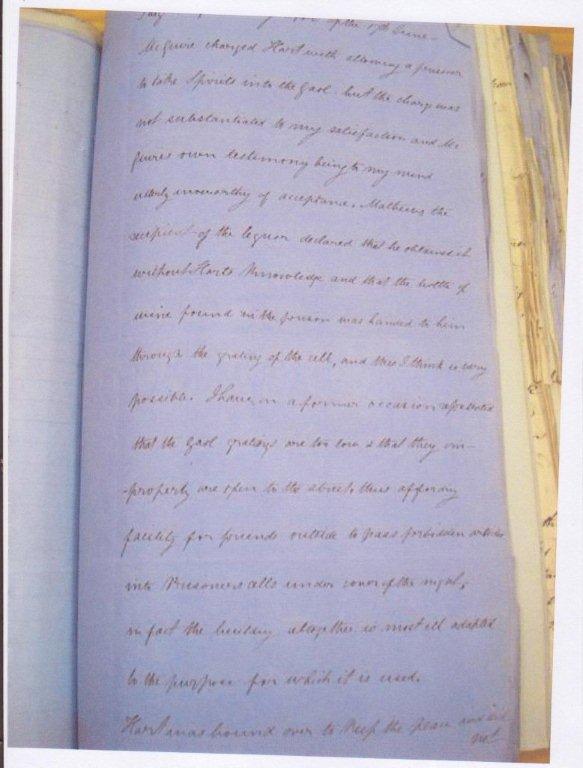 of the 17th June –
McGuire charged Hart with allowing a prisoner
to take spirits into the Gaol. but the charge was
not substantiated to my satisfaction and Mc
Guires own testimony being to my mind
utterly unworthy of acceptance. Mathews the
recipient of the liquor declared that he obtained it
without Harts Knowledge and that the bottle of
wine found in the prison was handed to him
through the grating of the cell, and this I think is very
possible. I have on a former occasion
that the Gaol gratings are too low & that they im-
-properly are open to the street, thus affording
facility for friends outside to pass forbidden articles
into Prisoners cells under cover of the night,
in fact the building altogether is most ill adapted
to the purpose for which it is used.
Hart was bound over to Keep the peace and did
not